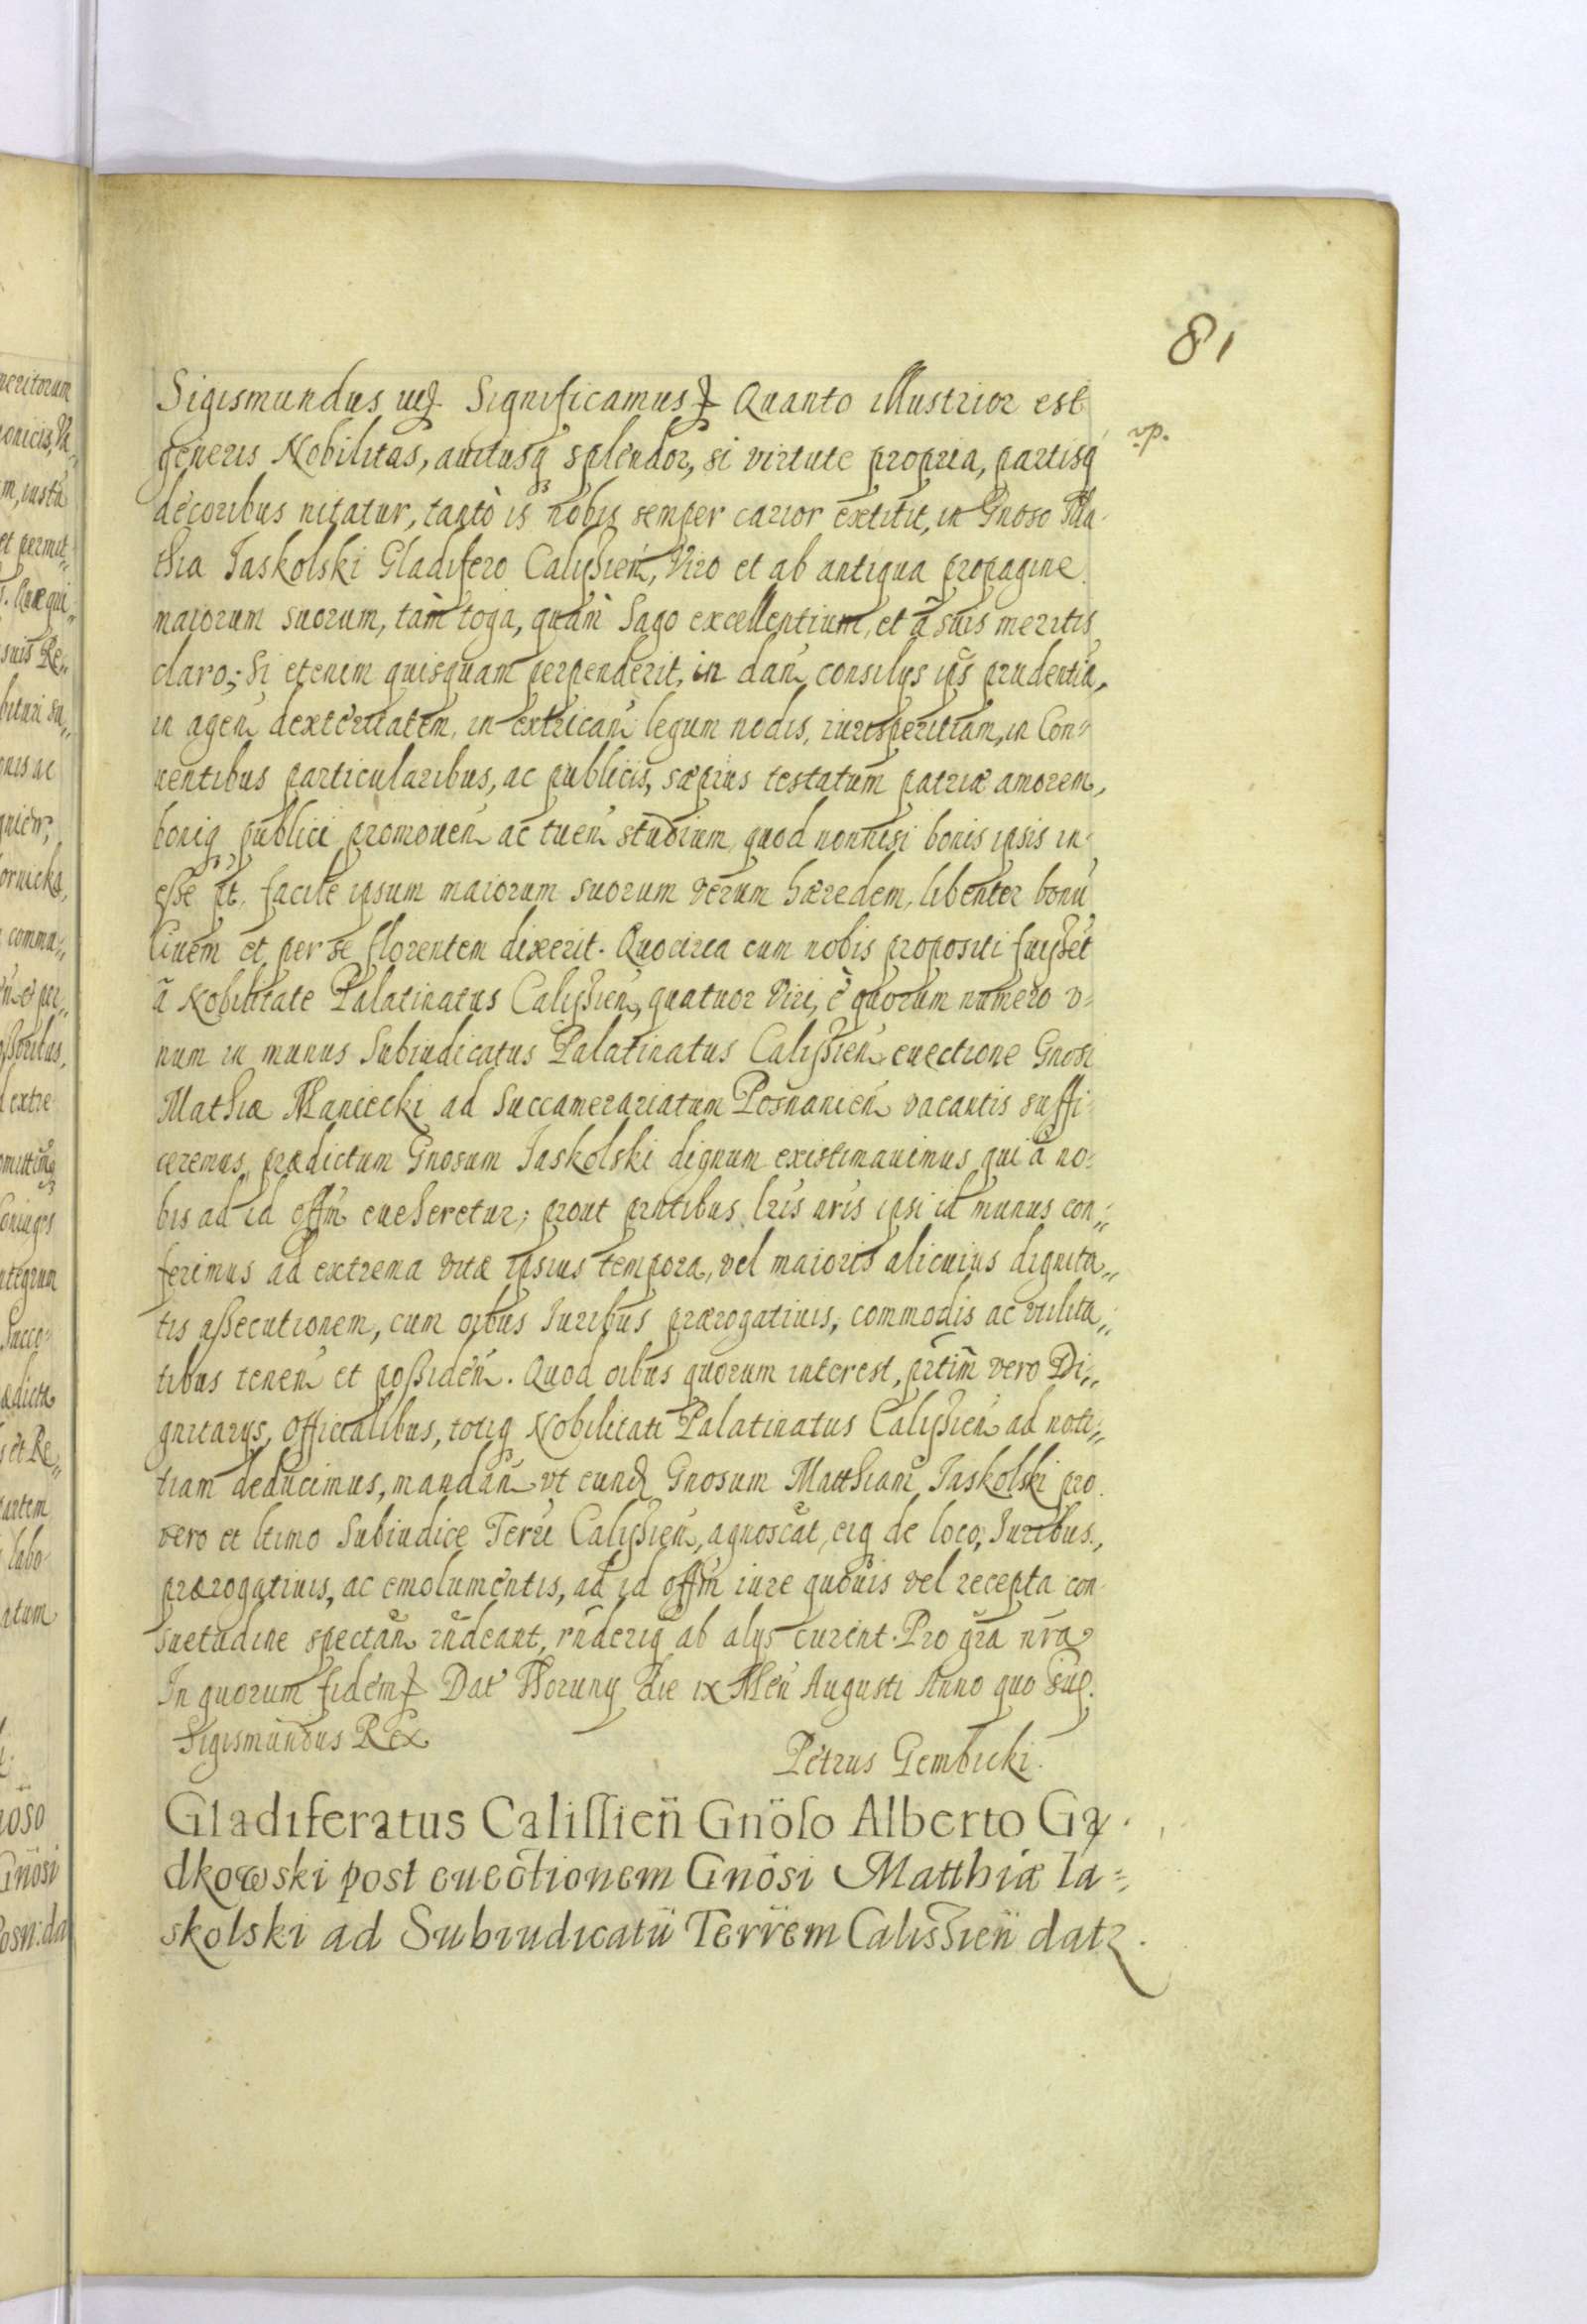 81
Sigismundus uts. Significamus &c Quanto illustrior est
generis Nobilitas, auitusq splendor, si virtute propria, partisq
vp.
decoribus nitatur, tantò is nobis semper carior extitit, in Gnoso Ma-
thia Jaskolski Gladifero Calissien, Viro et ab antiqua propagine
maiorum suorum, tàm toga, quàm Sago excellentium, et à suis meritis
claro; Si etenim quisquam perpenderit, in dan consilys ips prudentia,
in agen dexteritatem, in extrican legum nodis, iurisperitiam, in Con=
uentibus particularibus, ac publicis, sæpius testatum patriæ amorem,
boniq publici promouen ac tuen studium, quod nonnisi bonis ipsis in-
esse pt, facile ipsum maiorum suorum verum hæredem, libenter bonu
Ciuem et per se florentem dixerit. Quocirca cum nobis propositi fuisset
à Nobilitate Palatinatus Calissien, quatuor Viri, è quorum numero v-
num in munus Subiudicatus Palatinatus Calissien euectione Gnosi
Mathiæ Maniecki ad Succamerariatum Posnanien vacantis suffi-
ceremus, prædictum Gnosum Jaskolski dignum existimauimus qui à no-
bis ad id offm eueheretur; prout prntibus lris nris ipsi id munus con=
ferimus ad extrema vitæ ipsius tempora, vel maioris alicuius dignita=
tis assecutionem, cum oibus Juribus prærogatiuis, commodis ac vtilita=
tibus tenen et possiden. Quod oibus quorum interest, prtim vero Di=
gnitarys, Officialibus, totiq Nobilitati Palatinatus Calissien ad noti=
tiam deducimus, mandan vt eund Gnosum Matthiam Jaskolski pro
vero et ltimo Subiudice Terri Calissien, agnoscat, eiq de loco, Juribus,
prærogatiuis, ac emolumentis, ad id offm iure quouis vel recepta con-
suetudine spectan rndeant, rnderiq ab alys curent. Pro gra nra
In quorum fidem &c Dat Thoruny die ix Men Augusti Anno quo sup.
Sigismundus Rex
Petrus Gembicki.
Gladiferatus Calissien Gnoso Alberto Ga-
dkowski post euectionem Gnosi Matthiæ Ia=
skolski ad Subiudicatu Terrem Calissien datr.